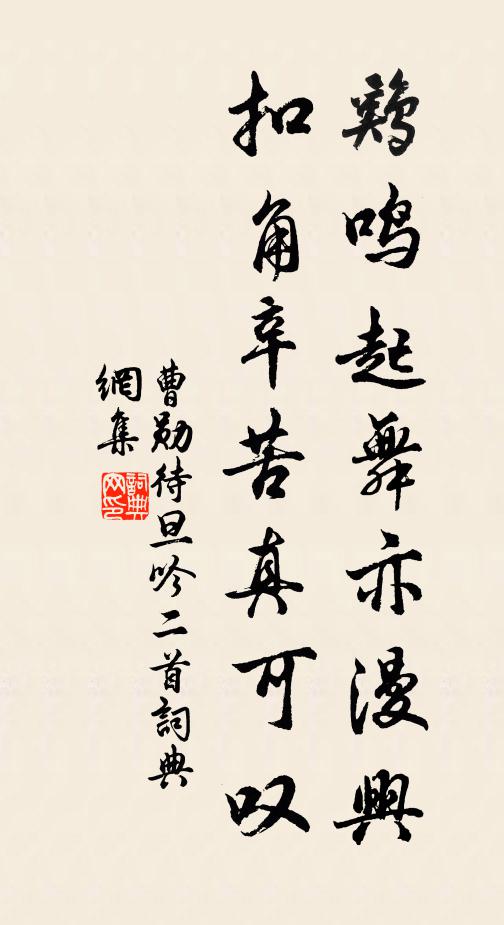 鷄鳴起舞亦漫興
扣角辛苦真可叹
曹勛待旦吟二首詞典
網集
詞典
网印